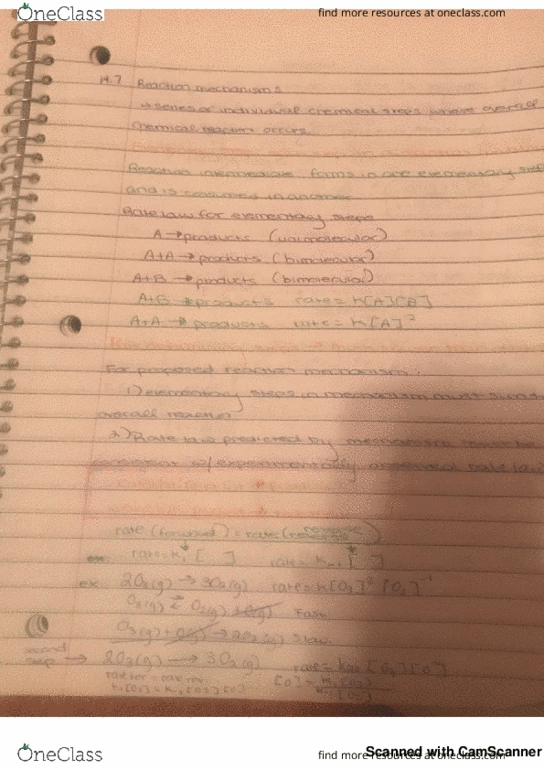 OneClass
find more resources at oneclass.com
14.7 Reaction mechanisms
→ series of individual chemical steps where overall
chemical reaction occurs.
Reaction intermediate forms in one elementary step
and is consumed in another
Rate law for elementary steps
A → products (unimolecular)
A+A → products (bimolecular)
A+B → products (bimolecular)
A+B → products rate = K[A][B]
A+A → products rate = K[A]²
For proposed reaction mechanism:
1) elementary steps in mechanism must
overall reaction
2) Rate law predicted by mechanism must be
consistent w/ experimentally observed rate law
rate (forward) = rate (reverse)
ex. rate = K₁ [ ] rate = K₋₁ [ ]
ex. 2O₃(g) → 3O₂(g) rate = K[O₃]² [O₂]⁻¹
O₃(g) ⇄ O₂(g) + O(g) Fast
O₃(g) + O(g) → 2O₂(g) Slow
second step → 2O₃(g) → 3O₂(g) rate = K₂ [O₃][O]
rate for = rate rev [O] = K₁[O₃]
K₁[O₃] = K₋₁[O₂][O] K₋₁[O₂]
OneClass
find more resources at oneclass.com
Scanned with CamScanner